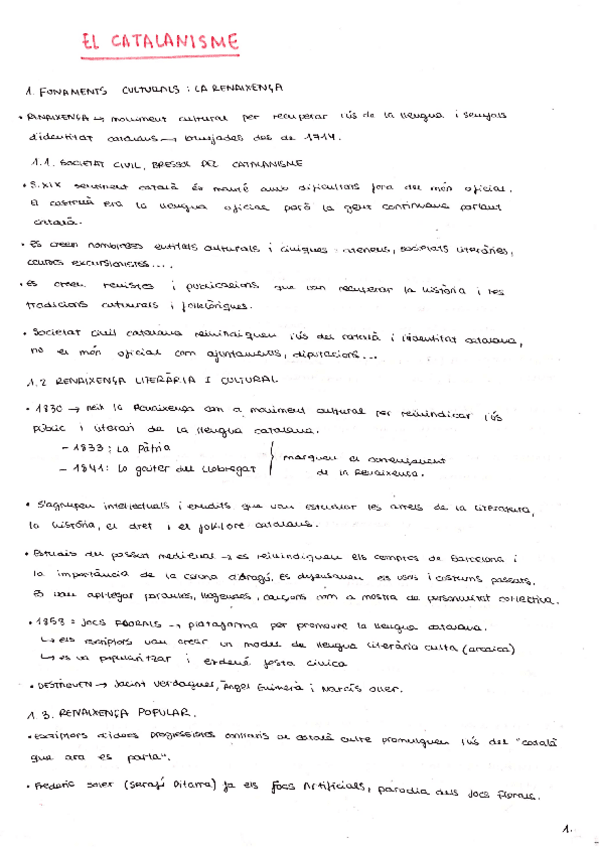 EL CATALANISME
1. FONAMENTS CULTURALS: LA RENAIXENÇA
• RENAIXENÇA → moviment cultural per recuperar l'ús de la llengua i senyals
d'identitat catalans → trepitjades des de 1714.
1.1. SOCIETAT CIVIL, BRESSOL DEL CATALANISME
• S.XIX sentiment català és manté amb dificultats fora del món oficial.
El castellà era la llengua oficial però la gent continuava parlant
català.
• Es creen nombroses entitats culturals i cíviques: ateneus, societats literàries,
excursionistes....
• Es creen revistes i publicacions que van recuperar la història i les
tradicions culturals i folklòriques.
• Societat civil catalana reivindiquen l'ús del català i l'identitat catalana,
no el món oficial com ajuntaments, diputacions...
1.2 RENAIXENÇA LITERÀRIA I CULTURAL
• 1830 → neix la Renaixença com a moviment cultural per reivindicar l'ús
públic i literari de la llengua catalana.
- 1833: La Pàtria
- 1841: Lo gaiter del Llobregat
marquen el començament
de la Renaixença.
• S'agrupen intel·lectuals i erudits que van estudiar les arrels de la literatura,
la història, el dret i el folklore catalans.
• Estudis du passat medieval → es reivindiquen els comptes de Barcelona i
la importància de la corona d'Aragó. Es defensaven els usos i costums passats.
Es van aplegar paraules, llegendes, cançons com a mostra de personalitat col·lectiva.
• 1859: JOCS FLORALS → plataforma per promoure la llengua catalana.
↳ els escriptors van crear un model de llengua literària culta (arcaica)
↳ es va popularitzar i esdevé festa cívica
• DESTAQUEN → Jacint Verdaguer, Àngel Guimerà i Narcís Oller.
1.3. RENAIXENÇA POPULAR.
• Escriptors d'idees progressistes contraris al català culte promulguen l'ús del "català
que ara es parla".
• Frederic Soler (Serafí Pitarra) fa els Jocs Artificials, paròdia dels Jocs Florals.
1.